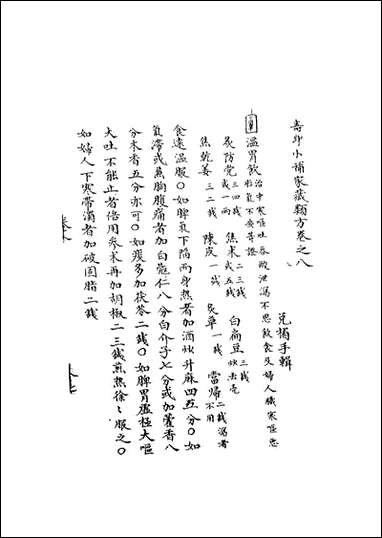 壽身小補家藏類方卷之八
兌楣手輯
溫胃飲 治中寒嘔吐吞酸泄瀉不思飲食及婦人臟寒嘔惡
胎氣不安等證
炙防党 三四錢或一兩 焦朮 二三錢或五錢 白扁豆 三錢炒去壳
焦乾姜 三二錢 陳皮 一錢 炙草 一錢 當歸 二錢瀉者不用
食遠溫服〇如脾氣下陷而身熱者加酒炒升麻四五分〇如
氣滯或兼胸腹痛者加白蔻仁八分白介子七分或加藿香八
分木香五分亦可〇如痰多加茯苓二錢〇如脾胃虛極大嘔
大吐不能止者倍用參朮再加胡椒二三錢煎熟徐〻服之〇
如婦人下寒帶濁者加破固脂二錢